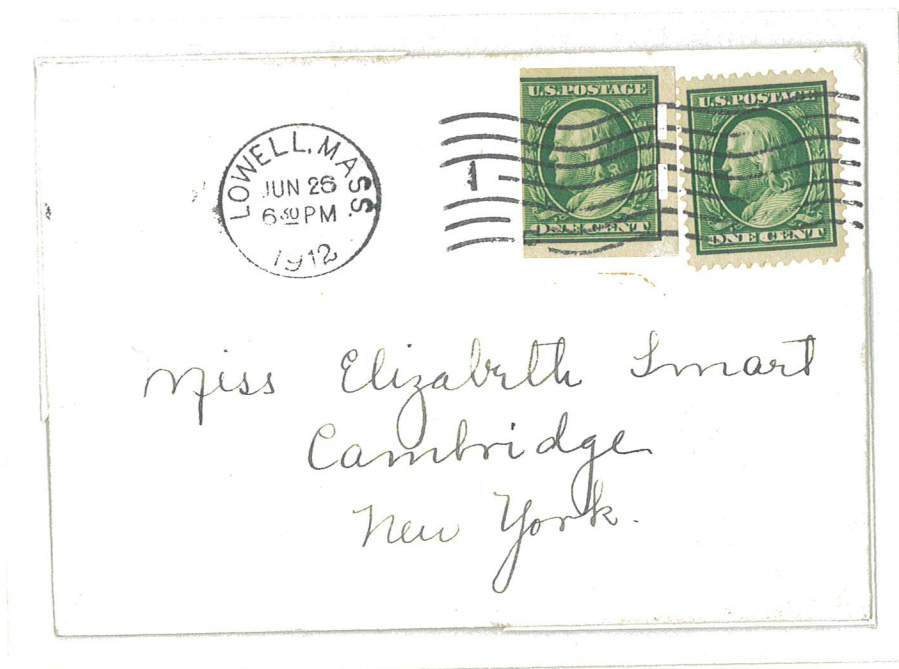 LOWELL, MASS.
JUN 26
6 30 PM
1912
1
U.S. POSTAGE
ONE CENT
U.S. POSTAGE
ONE CENT
Miss Elizabeth Smart
Cambridge
New York.